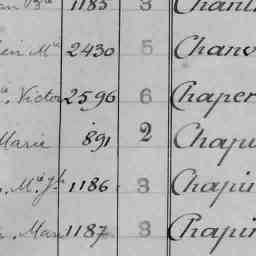 1185 3 Chant
Mie 2430 5 Chanv
Victor 2596 6 Chaper
Marie 891 2 Chapu
Mie Jh 1186 3 Chapu
Mar 1187 3 Chapin